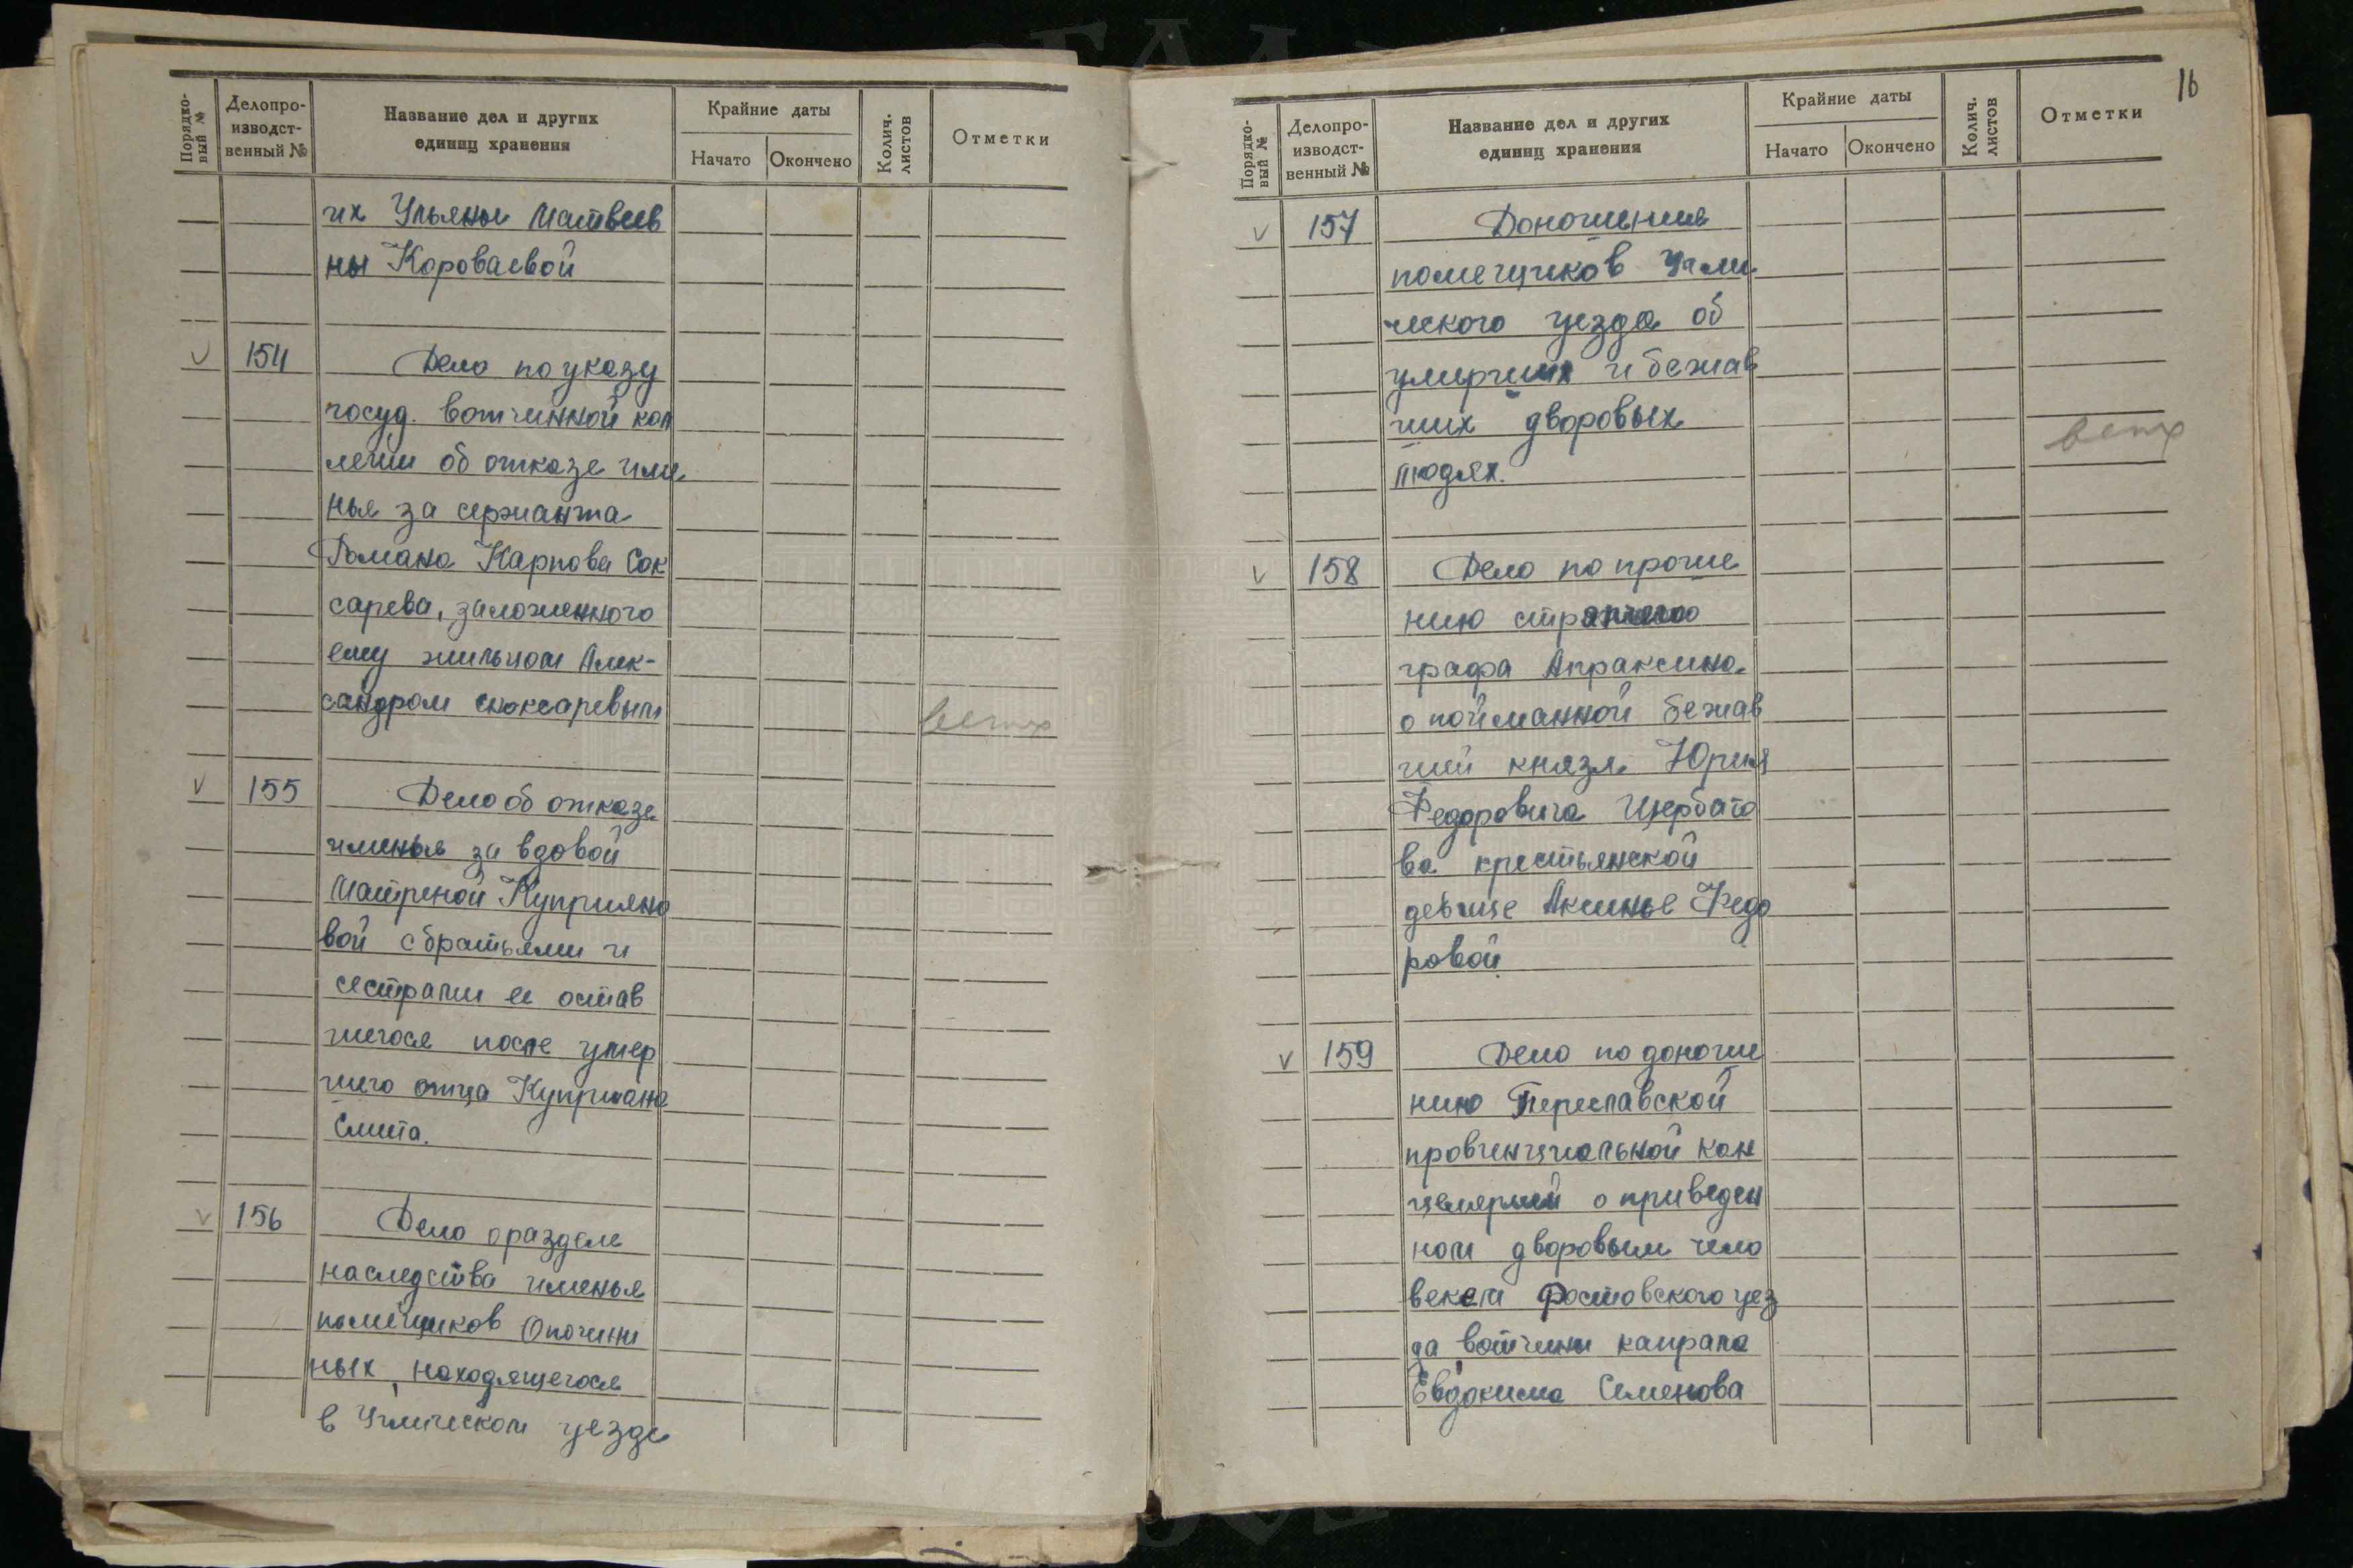 Порядко-
вый №
Делопро-
изводст-
венный №
Название дел и других
единиц хранения
Крайние даты
Начато
Окончено
Колич.
листов
Отметки
их Ульяны Матвеев
ны Короваевой
154
Дело по указу
госуд. вотчинной кол
легии об отказе име
нья за сержанта
Романа Карпова Сок
сарева, заложенного
ему жильцом Алек-
сандром скоксаревым
ветх
155
Дело об отказе
именья за вдовой
Матреной Куприяно
вой с братьями и
сестрами ее остав
шегося после умер
шего отца Куприана
Смита.
156
Дело о разделе
наследства именья
помещиков Опочини
ных, находящегося
в Угличском уезде
16
Порядко-
вый №
Делопро-
изводст-
венный №
Название дел и других
единиц хранения
Крайние даты
Начато
Окончено
Колич.
листов
Отметки
157
Доношения
помещиков Угли
ческого уезда об
умерших и бежав
ших дворовых
людях.
ветх
158
Дело по проше
нию стряпчего
графа Апраксина
о пойманной бежав
шей князя Юрия
Федоровича Щербато
ва крестьянской
девице Аксинье Федо
ровой
159
Дело по доноше
нию Переславской
провинциальной кан
целярией о приведен
ном дворовым чело
веком Ростовского уез
да, вотчины капрала
Евдокима Семенова